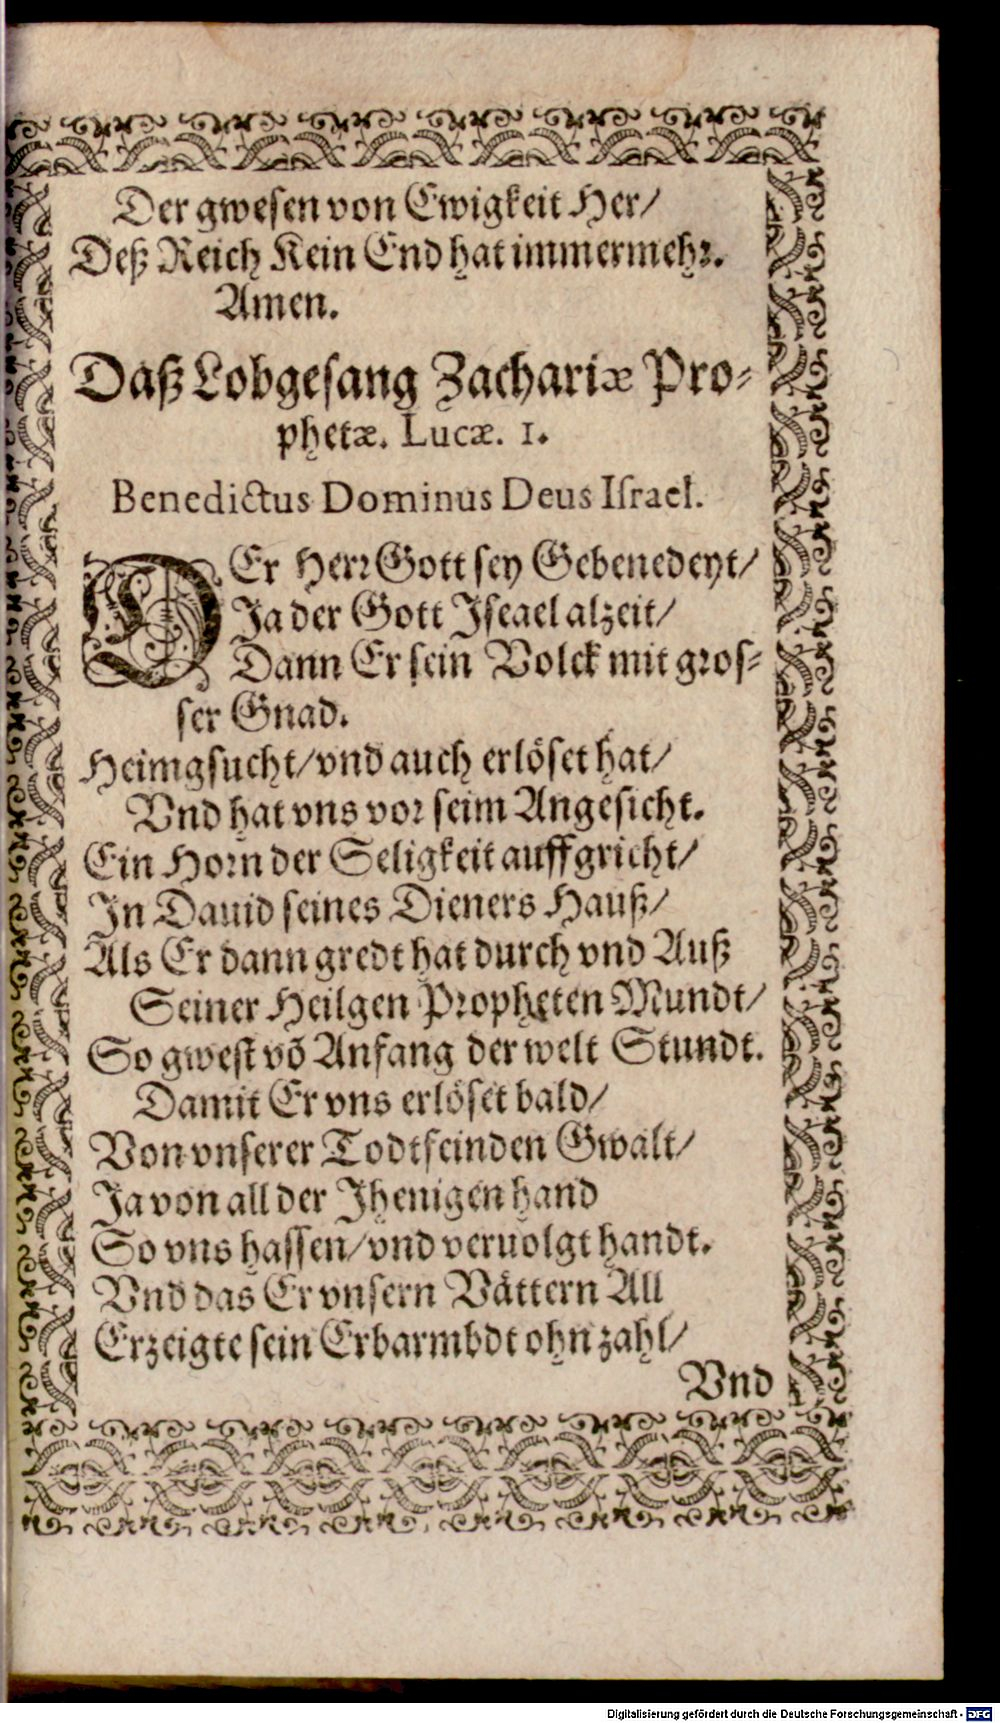 Der gwesen von Ewigkeit Her/
Deß Reich Kein End hat immermehr.
Amen.
Daß Lobgesang Zachariæ Pro-
phetæ. Lucæ. 1.
Benedictus Dominus Deus Israel.
DEr Herr Gott sey Gebenedeyt/
Ja der Gott Iseael alzeit/
Dann Er sein Volck mit gros-
ser Gnad.
Heimgsucht/vnd auch erlöset hat/
Vnd hat vns vor seim Angesicht.
Ein Horn der Seligkeit auffgricht/
In Dauid seines Dieners Hauß/
Als Er dann gredt hat durch vnd Auß
Seiner Heilgen Propheten Mundt/
So gwest võ Anfang der welt Stundt.
Damit Er vns erlöset bald/
Von vnserer Todtfeinden Gwalt/
Ja von all der Jhenigen hand
So vns hassen/vnd veruolgt handt.
Vnd das Er vnsern Vättern All
Erzeigte sein Erbarmbdt ohn zahl/
Vnd
Digitalisierung gefördert durch die Deutsche Forschungsgemeinschaft - DFG